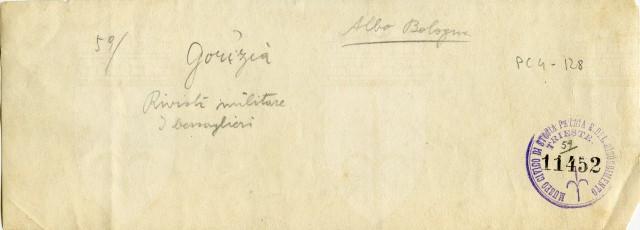 59/
Albo Bologna
Gorizia
PC 4 - 128
Rivista militare
I bersaglieri
MUSEO CIVICO DI STORIA PATRIA E DEL RISORGIMENTO
TRIESTE
59
11452